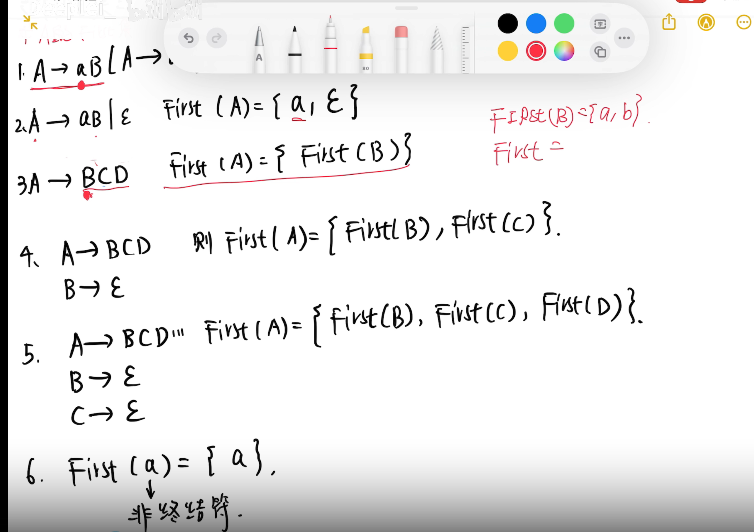 1. A → aB [A →
2. A → aB | ε First (A) = { a, ε }
First(B)={a, b}.
First =
3. A → BCD First (A) = { First (B) }
4、 A → BCD 则 First ( A)= { First(B) , First (C) }.
B → ε
5. A → BCD… First (A) = { First(B), First(C), First(D) }.
B → ε
C → ε
6. First (a) = { a }.
↓
非终结符.